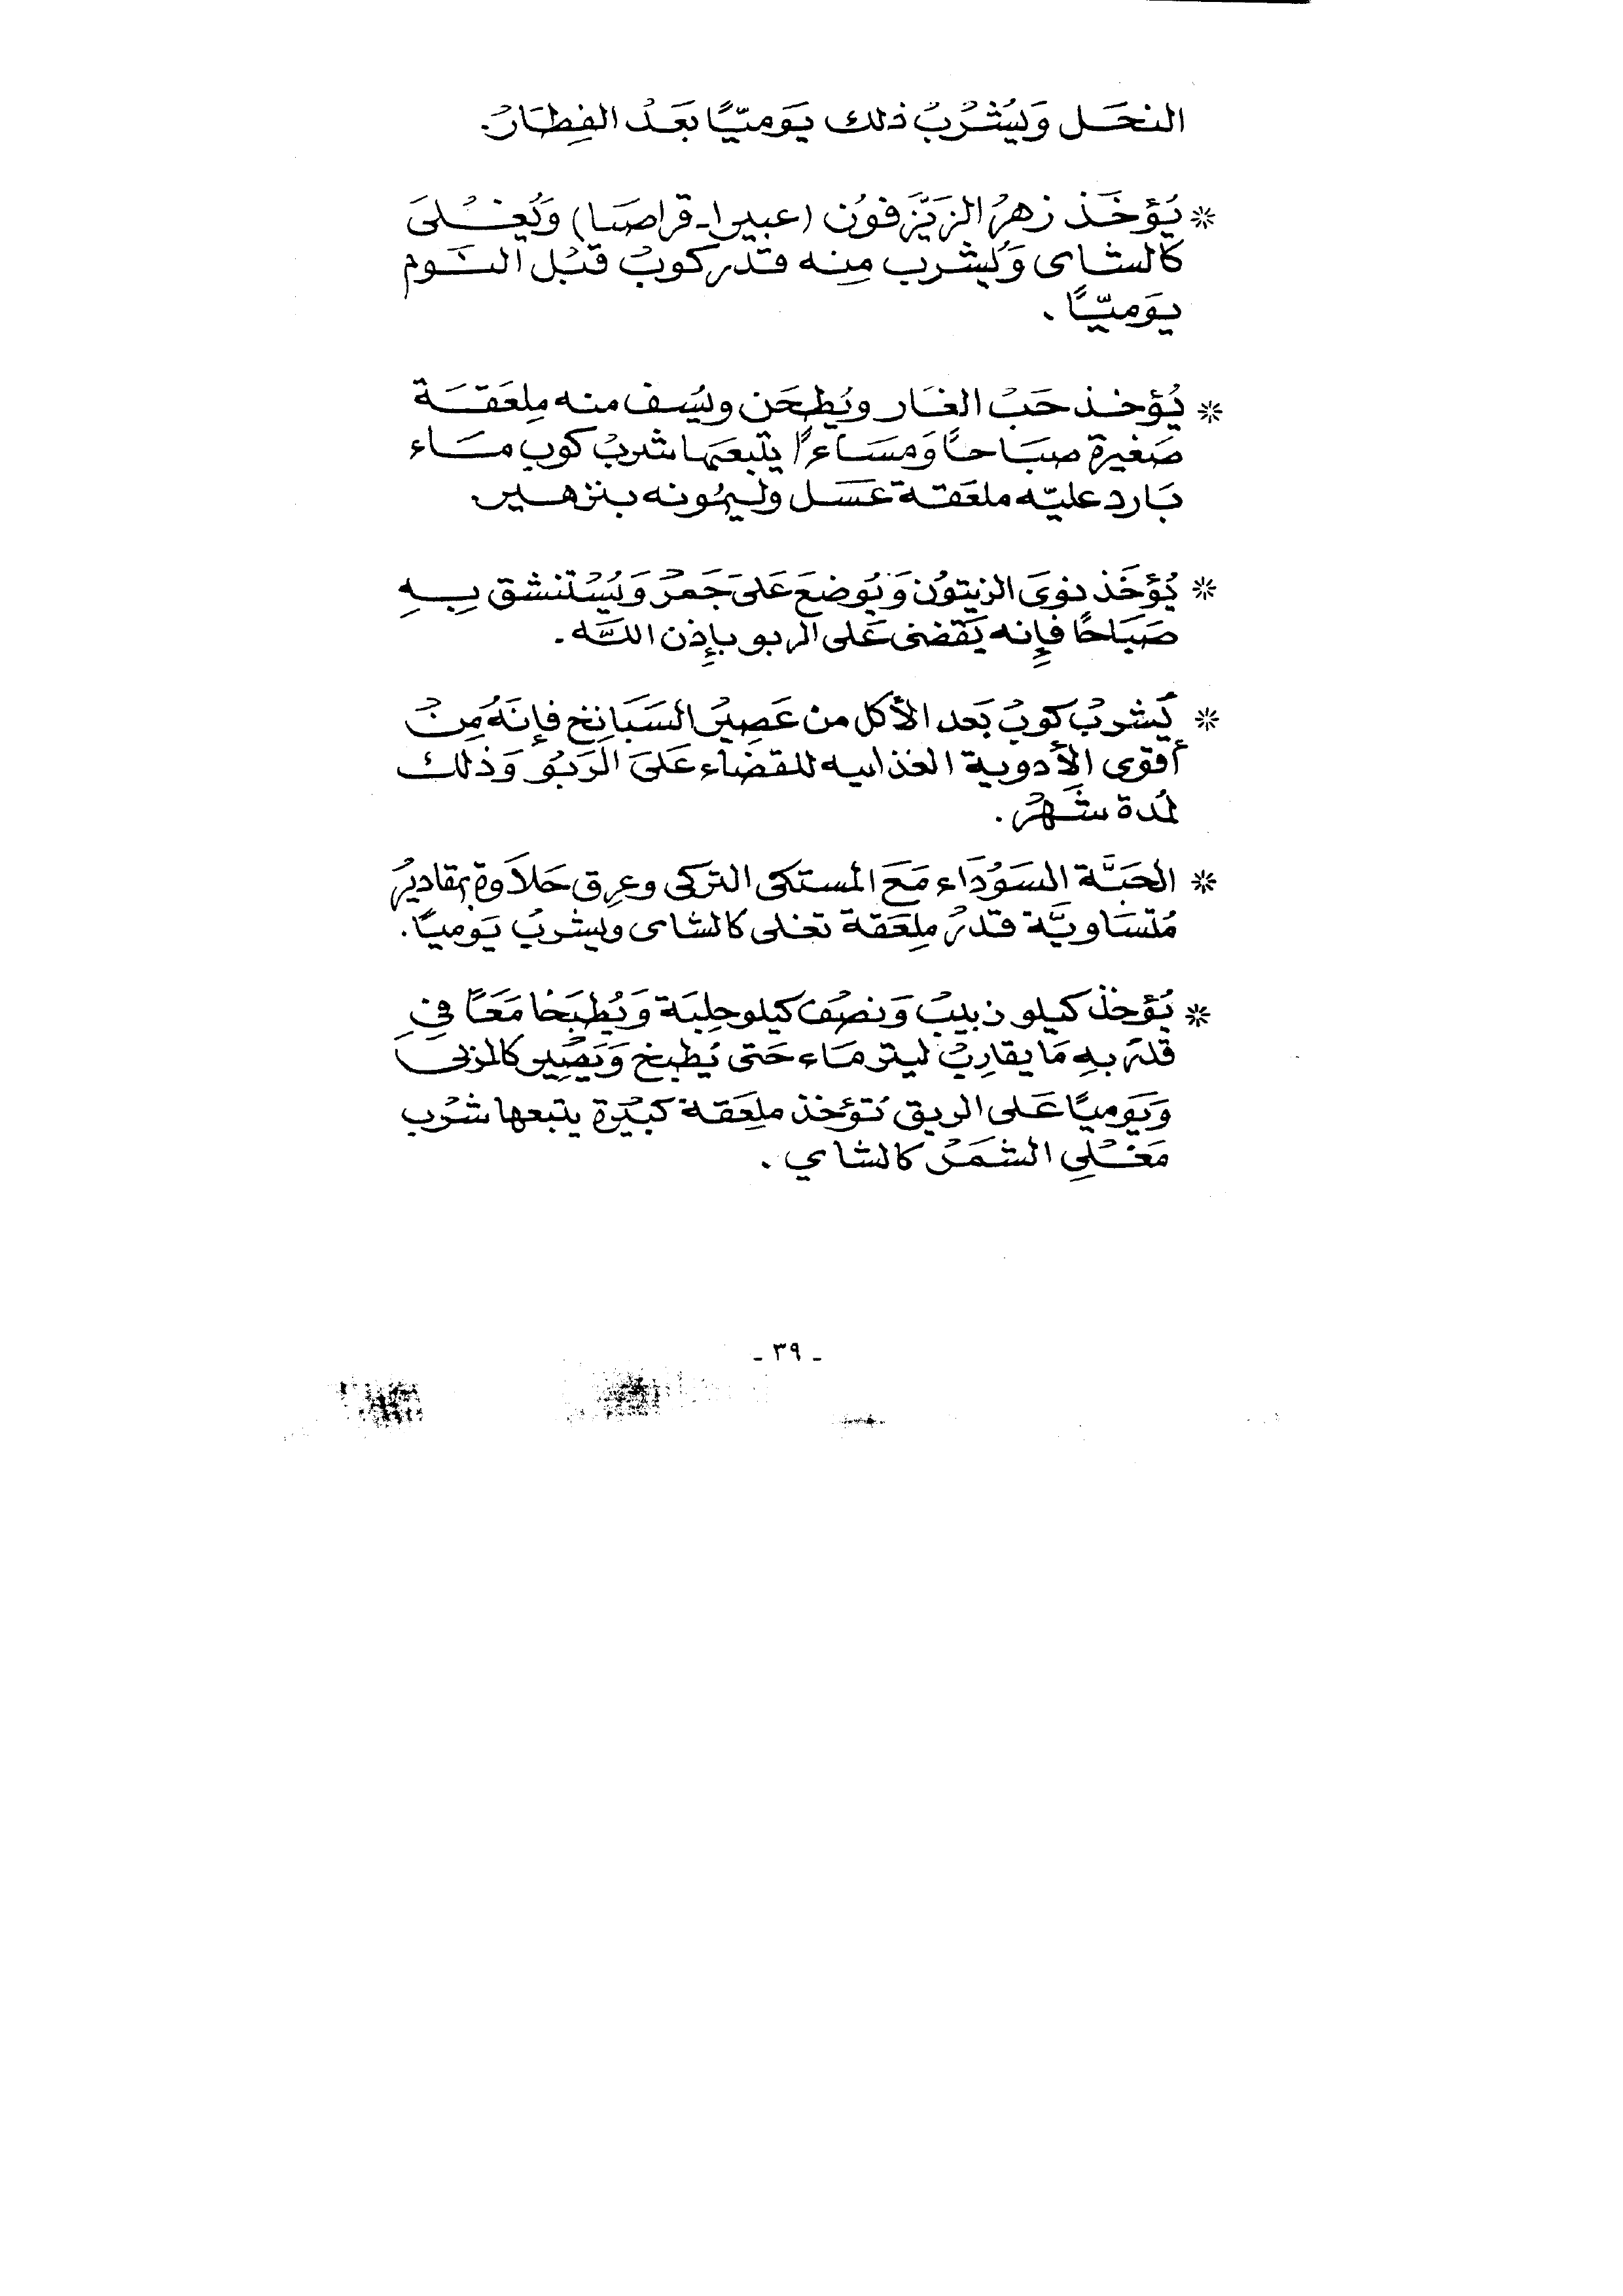 النحَل وَيُشْرُبُ ذلك يَوميّاً بَعَدْ الفِطَارْ.
* يُؤخَذ زهرُ الزَيَّزفوُن (عبيرا - قراصَيا) وَيُغْلىَ
كالشاى وَيُشرب مِنه قدر كوبْ قبْل النَوم
يوَميّاً .
* يُؤخذ حَبْ الغَار ويُطحَن ويُسف منه مِلعَقَة
صَغيرة صبَاحاً وَمسَاءاً يتبعَها شربْ كوب مَاء
بَارد عليّه ملعَقة عَسَل وليمُونه بنزهير.
* يُؤخَذ نوىَ الزيتوُن وَيُوضعَ عَلىَ جَمرْ وَيُسْتنشق بِهِ
صَبَاحًا فإِنه يَقضى عَلى الربو بإِذن اللَّه .
* يَشربْ كوبْ بَعد الأكل من عَصِيرْ السَبَانِخ فإنَهُ مِنْ
أقوى الأدوية الغذائيه للقضَاء عَلىَ الرَبوُ وَذلك
لمُدة شَهرْ .
* الحَبَّة السَوُدَاء مَعَ المستكى التركى وعِرق حَلاَوة بمقاديرُ
مُتسَاويَّة قدرْ مِلعَقة تغلى كالشاى ويشربُ يَومياً .
* يُؤخذْ كيلو زبيبْ وَنصْف كيلو حِلبَة وَيُطبَخا مَعَاً فيِ
قدرْ بهِ مَا يقاربْ ليتر مَاء حَتى يُطبخ وَيَصْيِر كالمربى
وَيَوميًا عَلى الريق تُؤخذ ملعَقة كبيْرة يتبعها شرْب
مَغْلِى الشمَرْ كالشاي .
- ٣٩ -